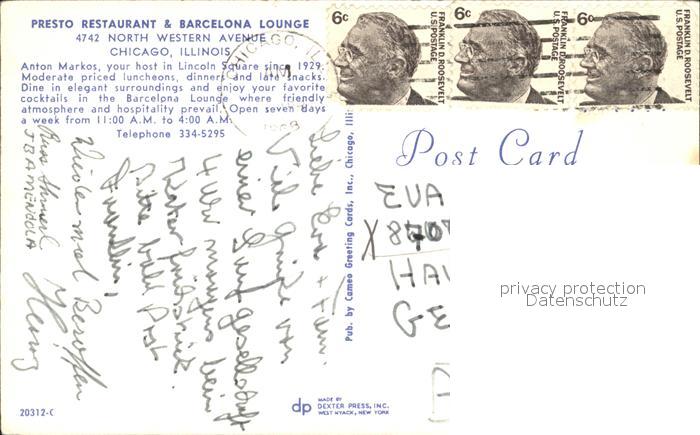 PRESTO RESTAURANT & BARCELONA LOUNGE
4742 NORTH WESTERN AVENUE
CHICAGO, ILLINOIS
Anton Markos, your host in Lincoln Square since 1929.
Moderate priced luncheons, dinners and late snacks.
Dine in elegant surroundings and enjoy your favorite
cocktails in the Barcelona Lounge where friendly
atmosphere and hospitality prevail. Open seven days
a week from 11:00 A.M. to 4:00 A.M.
Telephone 334-5295
CHICAGO, ILL
6c
FRANKLIN D. ROOSEVELT
U.S. POSTAGE
6c
FRANKLIN D. ROOSEVELT
U.S. POSTAGE
6c
FRANKLIN D. ROOSEVELT
U.S. POSTAGE
Post Card
Liebe Eva + Fam.
Viele Grüße von
einer Saufgesellschaft
4 Uhr morgens beim
Katerfrühstück.
Bitte bald Post
Wieder mal Besoffen
Heinz
JBAMENDOLA
Pub. by Cameo Greeting Cards, Inc., Chicago, Illi
EVA
HA
GE
privacy protection
Datenschutz
20312-C
dp
MADE BY
DEXTER PRESS, INC.
WEST NYACK, NEW YORK